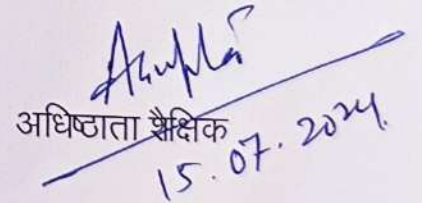 अधिष्ठाता शैक्षिक
15.07.2024